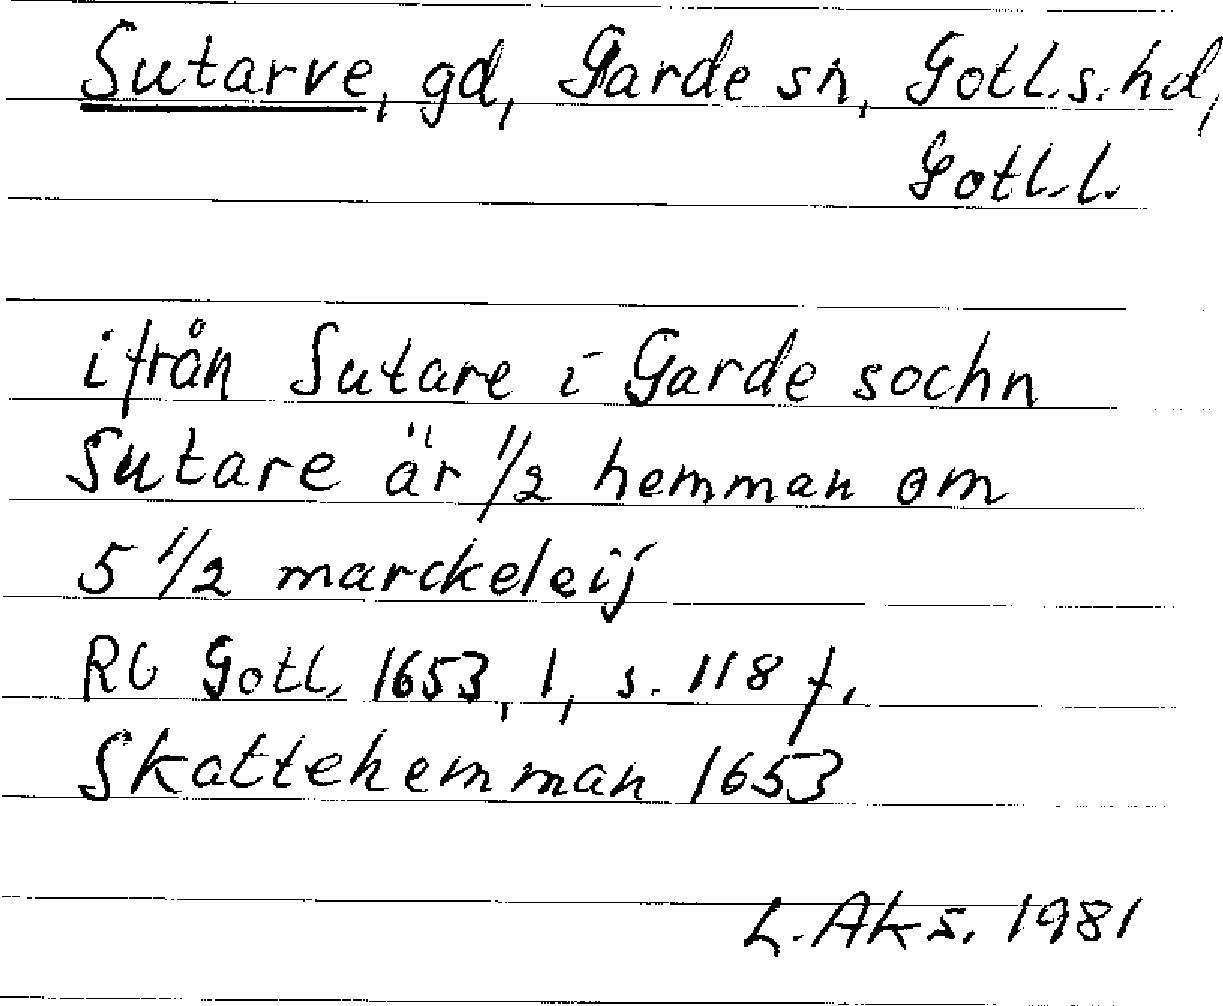 Sutarve, gd, Garde sn, Gotl.s.hd,
Gotl.l.
ifrån Sutare i Garde sochn
Sutare är 1/2 hemman om
5 1/2 marckeleij
RC Gotl. 1653, 1, s. 118 f.
Skattehemman 1653
L. Aks. 1981